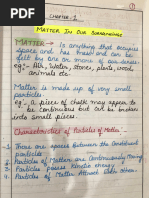 1
CHAPTER - 1
MATTER IN OUR SURROUNDINGS
MATTER → Is anything that occupies
space and has mass and can be
felt by one or more of our senses.
eg:- Air, Water, stones, plants, wood,
animals etc.
Matter is made up of very small
particles.
eg:- A piece of chalk may appear
to be continuous but can be broken
into small pieces.
Characteristics of Particles of Matter
1. There are spaces between the constituent
particles
2. Particles of Matter are Continuously Moving
3. Particles possess kinetic energy.
4. Particles of Matter Attract Each other.